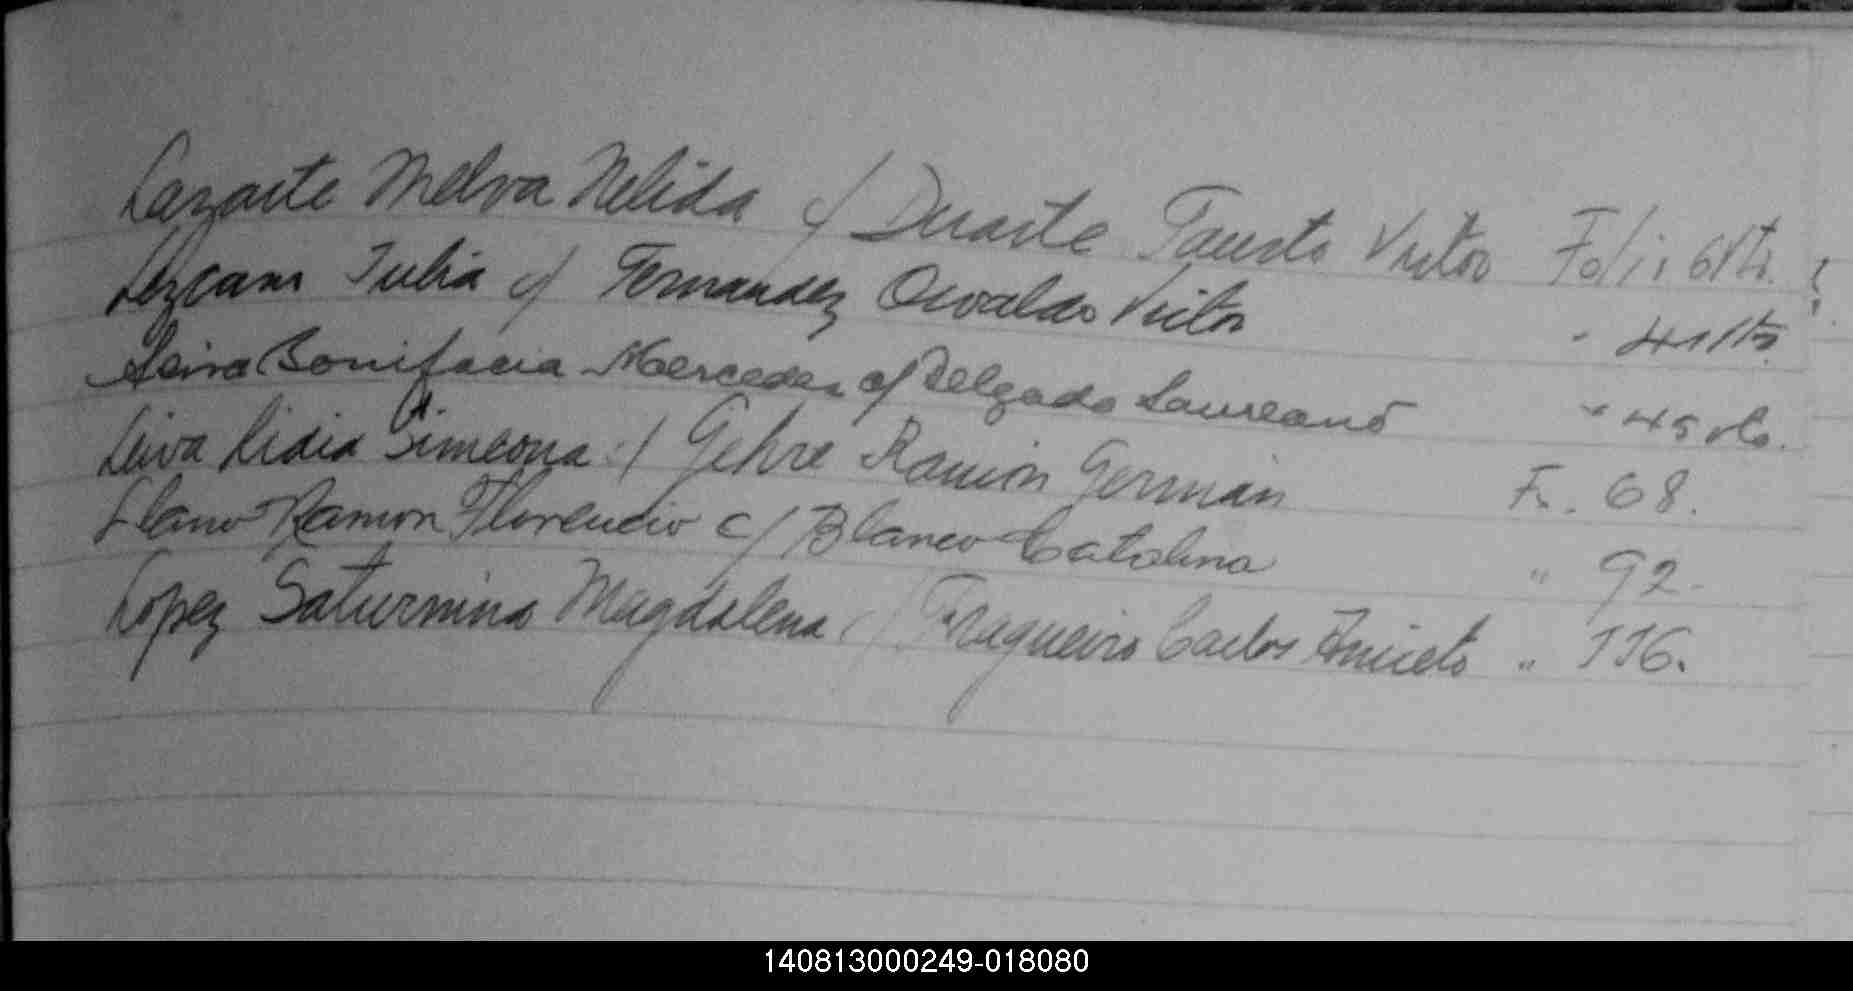 Lazarte Melva Nelida c/ Duarte Fausto Victor Folio 6 vto.
Lezcano Julia c/ Fernandez Osvaldo Victor " 41 vto.
Leiva Bonifacia Mercedes c/ Delgado Laureano " 45 vto.
Leiva Lidia Simeona c/ Gehre Ramón Germán Fo. 68.
Llano Ramon Florencio c/ Blanco Catalina " 92.
Lopez Saturnina Magdalena c/ Fragueiro Carlos Aniceto " 116.
140813000249-018080